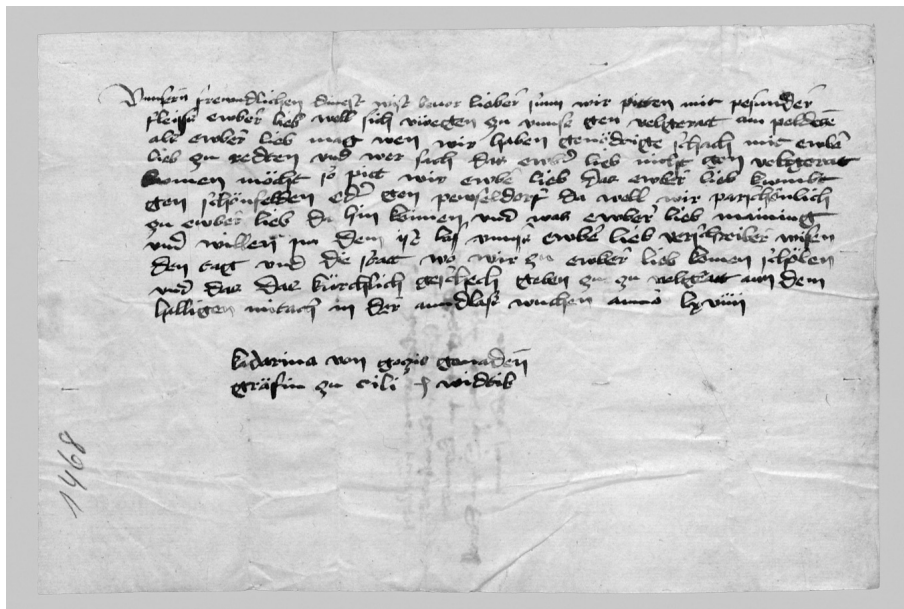 Vnnsern frewndlichen dinest wist beuor lieber sunn wir pitten mit pesunder
fleiss ewber lieb well sich zu vnnss gen velgerat
als ewber lieb mag wen wir haben genödrige schach mit ewber
lieb zu redten vnd wer sich das ewber lieb nicht gen velgerat
komen möcht so pitt wir ewber lieb das ewber lieb kwmbt
gen schönfelden eder gen da well wir parschönlich
zu ewber lieb da hin komen vnd was ewber lieb maining
vnd willen in dem ist las vnnss ewber lieb verschriben wisen
den tag vnd die statt wo wir zu ewber lieb komen schölen
vnd das das kürchlich geschech geben zu velgratt an dem
halligen mitach in der anndlas wuchen anno lxviiii
katarina von gozis genaden
gräfin zu cili witib
1468